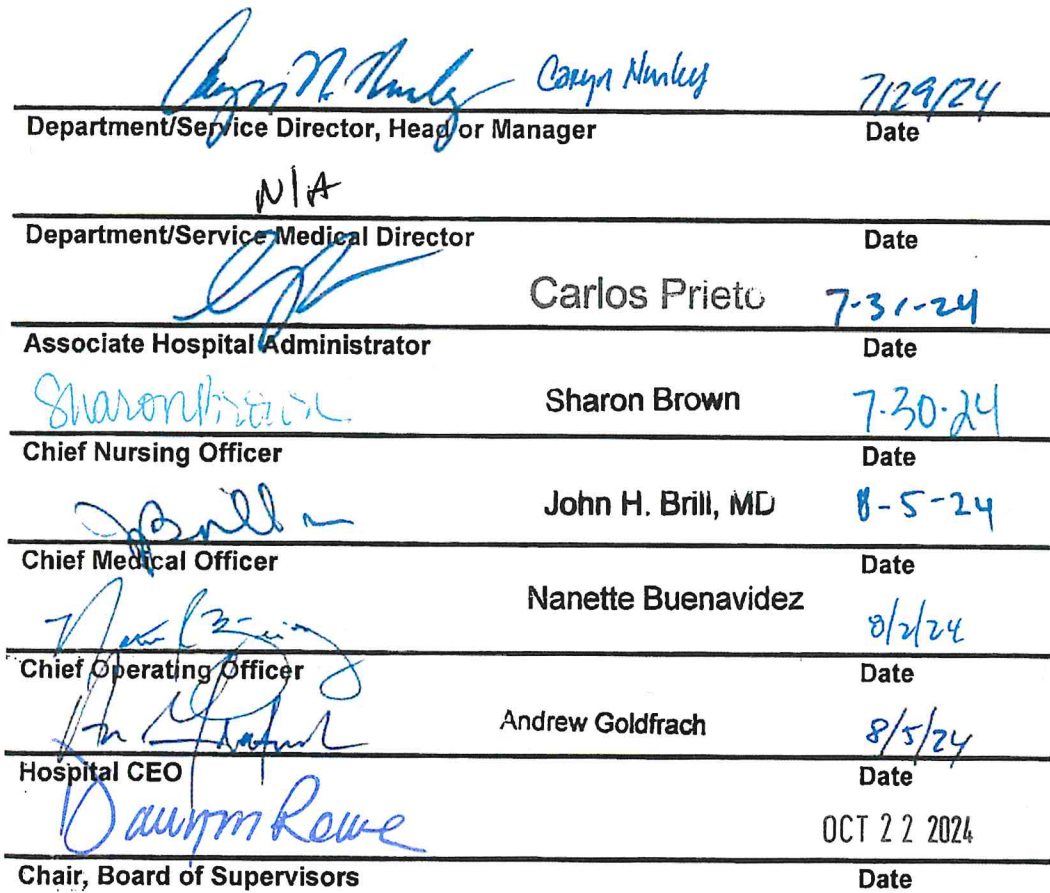 Caryn Nunley 7/29/24
Department/Service Director, Head or Manager Date
N/A
Department/Service Medical Director Date
Carlos Prieto 7-31-24
Associate Hospital Administrator Date
Sharon Brown Sharon Brown 7-30-24
Chief Nursing Officer Date
John H. Brill, MD 8-5-24
Chief Medical Officer Date
Nanette Buenavidez 8/2/24
Chief Operating Officer Date
Andrew Goldfrach 8/5/24
Hospital CEO Date
Dawn Rowe OCT 22 2024
Chair, Board of Supervisors Date